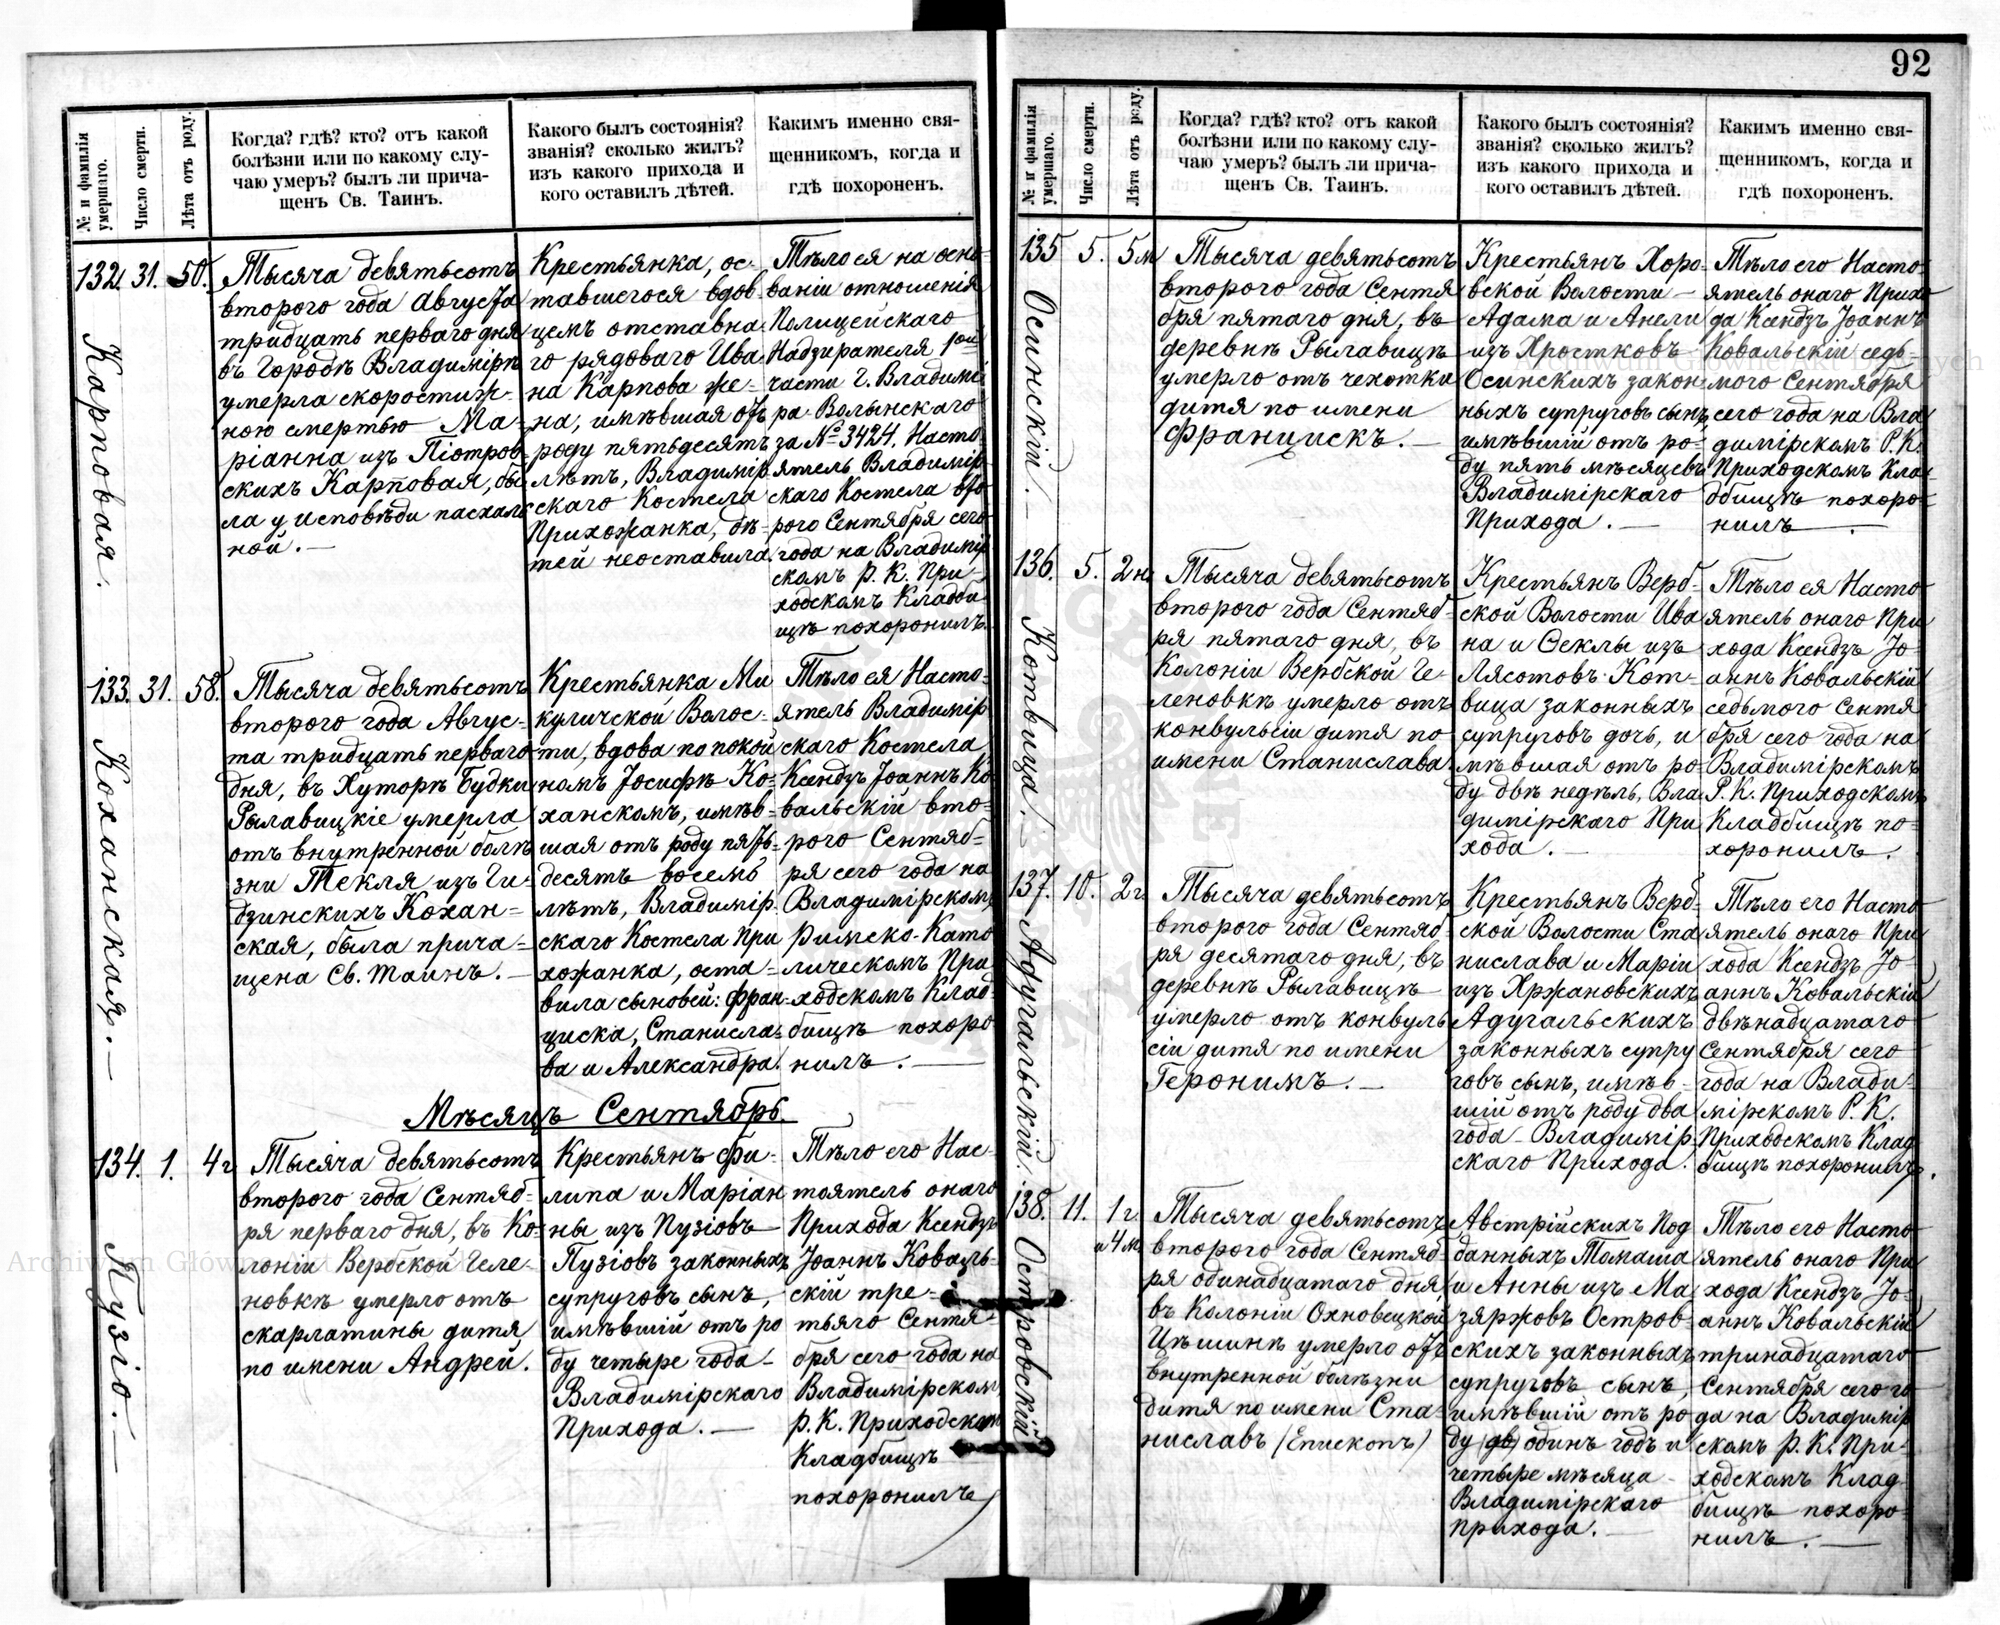 92
№ и фамилія умершаго.
Число смерти.
Лѣта отъ роду.
Когда? гдѣ? кто? отъ какой
болѣзни или по какому слу-
чаю умеръ? былъ ли прича-
щенъ Св. Таинъ.
Какого былъ состоянія?
званія? сколько жилъ?
изъ какого прихода и
кого оставилъ дѣтей.
Какимъ именно свя-
щенникомъ, когда и
гдѣ похороненъ.
132. 31. 50.
Карповая.
Тысяча девятьсотъ
второго года Августа
тридцать перваго дня
въ Городѣ Владимірѣ
умерла скоростиж-
ною смертью Ма-
ріанна изъ Піотров-
скихъ Карповая, бы
ла у исповѣди пасхаль
ной. —
Крестьянка, ос-
тавшегося вдов
цемъ отставна-
го рядоваго Ива
на Карпова же-
на, имѣвшая отъ
роду пятьдесятъ
лѣтъ, Владимір
скаго Костела
Прихожанка, дѣ-
тей неоставила.
Тѣло ея на осно-
ваніи отношенія
Полицейскаго
Надзирателя
части г. Владимі
ра-Волынскаго
за № 3424. Насто-
ятель Владимір-
скаго Костела вто
рого Сентября сего
года на Владимір
скомъ Р. К. При-
ходскомъ Кладби
щѣ похоронилъ.
133. 31. 58.
Коханская. —
Тысяча девятьсотъ
второго года Авгус-
та тридцать перваго
дня, въ Хуторѣ Будки
Рылавицкіе умерла
отъ внутренной болѣ
зни Текля изъ Ги-
дзинскихъ Кохан-
ская, была прича-
щена Св. Таинъ. —
Крестьянка Ми
куличской Волос-
ти, вдова по покой
номъ Іосифѣ Ко-
ханскомъ, имѣв-
шая отъ роду пять-
десятъ восемь
лѣтъ, Владимір-
скаго Костела При
хожанка, оста-
вила сыновей: Фран-
циска, Станисла-
ва и Александра.
Тѣло ея Насто-
ятель Владимір
скаго Костела
Ксендзъ Іоаннъ Ко
вальскій вто-
рого Сентяб-
ря сего года на
Владимірскомъ
Римско-Като
лическомъ При
ходскомъ Клад-
бищѣ похоро-
нилъ. —
Мѣсяцъ Сентябрь.
134. 1. 4 г
Пузіо. —
Тысяча девятьсотъ
второго года Сентяб-
ря перваго дня, въ Ко-
лоніи Вербской Геле-
новкѣ умерло отъ
скарлатины дитя
по имени Андрей.
Крестьянъ Фи-
липа и Маріан
ны изъ Пузіовъ
Пузіовъ законныхъ
супруговъ сынъ,
имѣвшій отъ ро
ду четыре года —
Владимірскаго
Прихода. —
Тѣло его Нас-
тоятель онаго
Прихода Ксендзъ
Іоаннъ Коваль-
скій тре-
тьяго Сентя-
бря сего года на
Владимірскомъ
Р. К. Приходскомъ
Кладбищѣ
похоронилъ
№ и фамилія умершаго.
Число смерти.
Лѣта отъ роду.
Когда? гдѣ? кто? отъ какой
болѣзни или по какому слу-
чаю умеръ? былъ ли прича-
щенъ Св. Таинъ.
Какого былъ состоянія?
званія? сколько жилъ?
изъ какого прихода и
кого оставилъ дѣтей.
Какимъ именно свя-
щенникомъ, когда и
гдѣ похороненъ.
135 5. 5 м
Осинскій. —
Тысяча девятьсотъ
второго года Сентя
бря пятаго дня, въ
деревнѣ Рылавицѣ
умерло отъ чехотки
дитя по имени
Францискъ. —
Крестьянъ Хоро-
вской Волости —
Адама и Анели
изъ Хростковъ
Осинскихъ закон-
ныхъ супруговъ сынъ,
имѣвшій отъ ро-
ду пять мѣсяцевъ
Владимірскаго
Прихода. —
Тѣло его Насто-
ятель онаго Прихо
да Ксендзъ Іоаннъ
Ковальскій седь-
мого Сентября
сего года на Вла
димірскомъ Р. К.
Приходскомъ Кла-
дбищѣ похоро-
нилъ —.
136. 5. 2 н
Котвица. —
Тысяча девятьсотъ
второго года Сентяб-
ря пятаго дня, въ
Колоніи Вербской Ге-
леновкѣ умерло отъ
конвульсіи дитя по
имени Станислава.
Крестьянъ Верб-
ской Волости Ива
на и Ѳеклы изъ
Лясотовъ Кот-
вица законныхъ
супруговъ дочь, и
мѣвшая отъ ро-
ду двѣ недѣль, Вла-
димірскаго При
хода. —
Тѣло ея Насто
ятель онаго При
хода Ксендзъ Іо-
аннъ Ковальскій
седьмого Сентя
бря сего года на
Владимірскомъ
Р. К. Приходскомъ
Кладбищѣ по-
хоронилъ.
137. 10. 2 г
Адугальскій.
Тысяча девятьсотъ
второго года Сентяб-
ря десятаго дня, въ
деревнѣ Рылавицѣ
умерло отъ конвуль
сіи дитя по имени
Геронимъ. —
Крестьянъ Верб-
ской Волости Ста
нислава и Маріи
изъ Хржановскихъ
Адугальскихъ
законныхъ супру
говъ сынъ, имѣв-
шій отъ роду два
года — Владимір-
скаго Прихода.
Тѣло его Насто
ятель онаго При
хода Ксендзъ Іо-
аннъ Ковальскій
двѣнадцатаго
Сентября сего
года на Влади-
мірскомъ Р. К.
Приходскомъ Клад
бищѣ похоронилъ.
138. 11. 1 г.
и 4 м.
Островскій
Тысяча девятьсотъ
второго года Сентяб
ря одинадцатаго дня,
въ Колоніи Охновецкой
Цѣшинѣ умерло отъ
внутренной болѣзни
дитя по имени Ста-
ниславъ (Епископъ)
Австрійскихъ Под
данныхъ Томаша
и Анны изъ Ма
зяржовъ Остров-
скихъ законныхъ
супруговъ сынъ,
имѣвшій отъ ро-
ду (дв) одинъ годъ и
четыре мѣсяца —
Владимірскаго
Прихода. —
Тѣло его Насто
ятель онаго При
хода Ксендзъ Іо-
аннъ Ковальскій
тринадцатаго
Сентября сего го
да на Владимір
скомъ Р. К. При-
ходскомъ Клад
бищѣ похоро-
нилъ. —